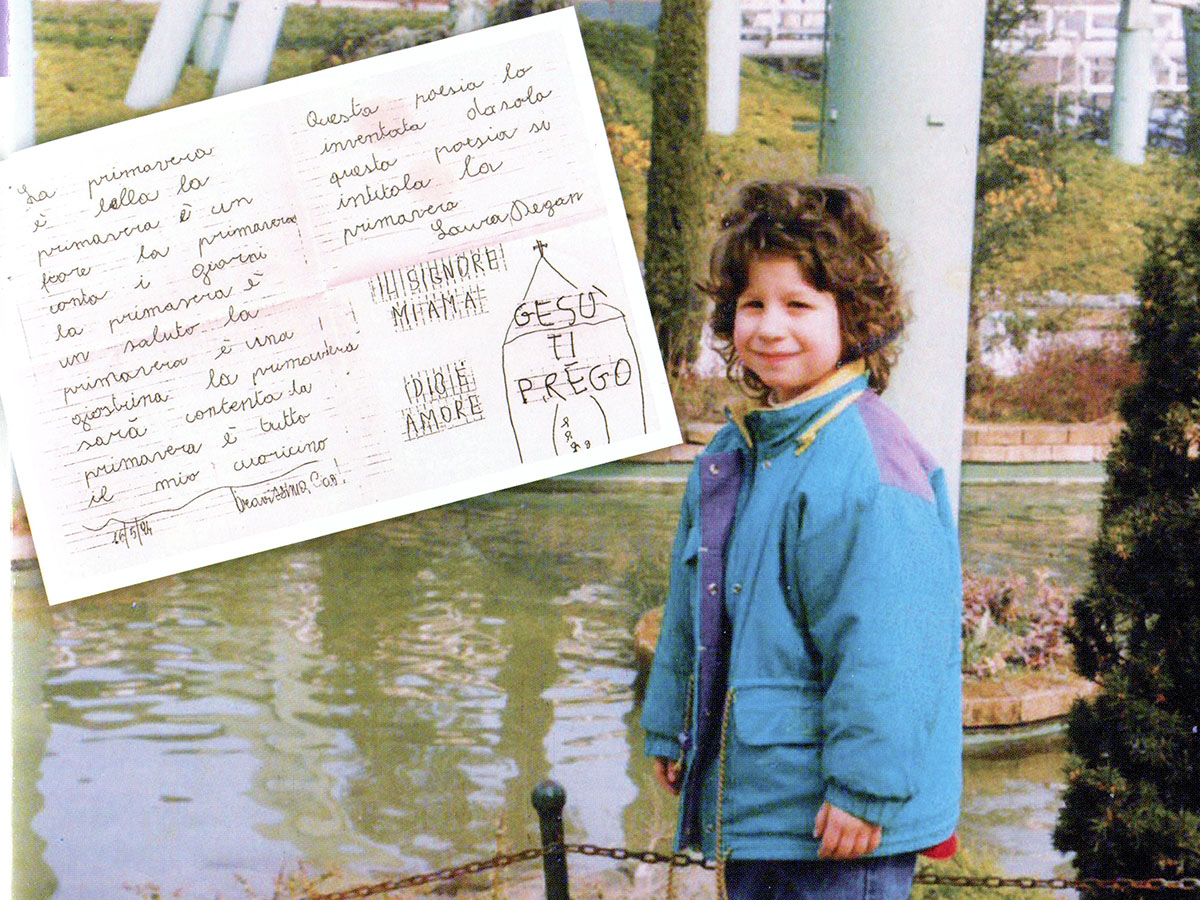 La primavera
è bella la
primavera è un
fiore la primavera
conta i giorni
la primavera è
un saluto la
primavera è una
giostrina la primavera
sarà contenta la
primavera è tutto
il mio cuoricino
Bravissima
26/5/94
Questa poesia lo
inventata dasola
questa poesia si
intitola La
primavera
Laura Degan
IL SIGNORE
MI AMA
DIO È
AMORE
GESÙ
TI
PREGO